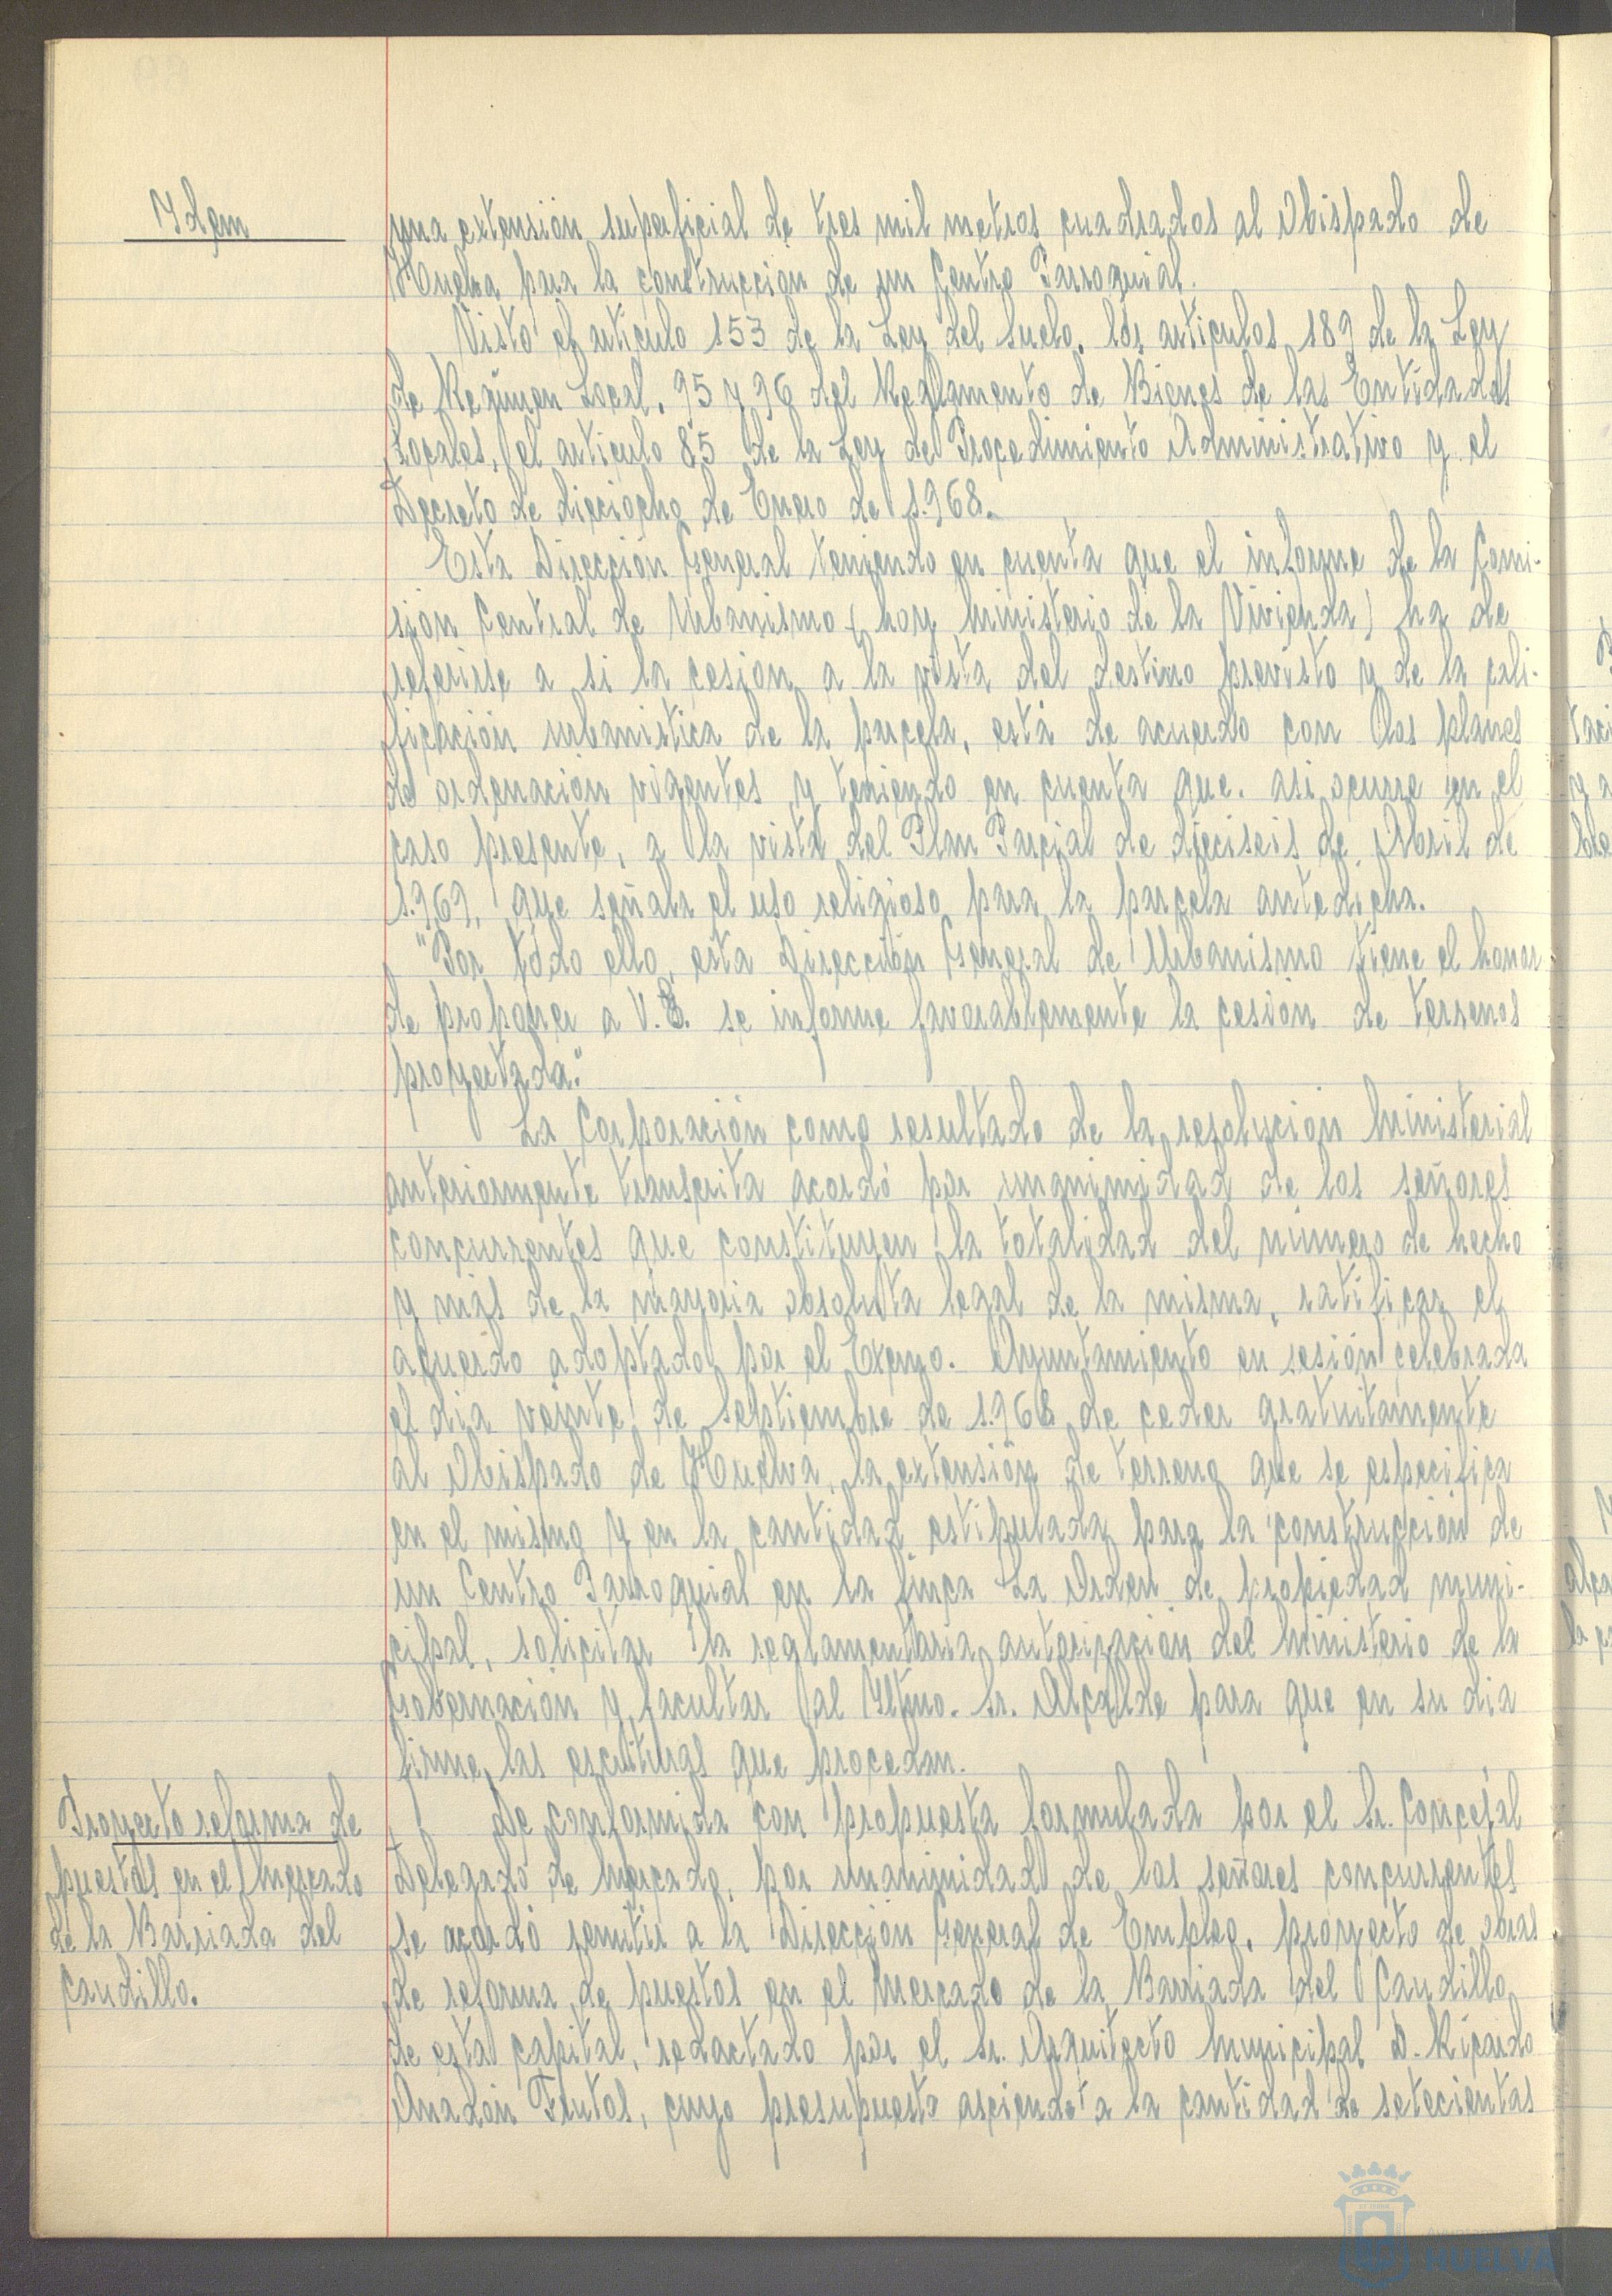 Idem
una extensión superficial de tres mil metros cuadrados al Obispado de
Huelva para la construcción de un Centro Parroquial.
Visto el artículo 153 de la Ley del Suelo, los artículos 189 de la Ley
de Regimen Local, 95 y 96 del Reglamento de Bienes de las Entidades
Locales, el artículo 85 de la Ley de Procedimiento Administrativo y el
Decreto de dieciocho de Enero de 1.968.
Esta Dirección General teniendo en cuenta que el informe de la Comi-
sión Central de Urbanismo (hoy Ministerio de la Vivienda) ha de
referirse a si la cesión a la vista del destino previsto y de la cali-
ficación urbanística de la parcela, está de acuerdo con los planes
de ordenación vigentes y teniendo en cuenta que. asi ocurre en el
caso presente, a la vista del Plan Parcial de dieciseis de Abril de
1.969, que señala el uso religioso para la parcela antedicha.
"Por todo ello, esta Dirección General de Urbanismo tiene el honor
de proponer a V.E. se informe favorablemente la cesión de terrenos
proyectada."
La Corporación como resultado de la resolución Ministerial
anteriormente transcrita acordó por unanimidad de los señores
concurrentes que constituyen la totalidad del número de hecho
y más de la mayoria absoluta legal de la misma, ratificar el
acuerdo adoptado por el Excmo. Ayuntamiento en sesión celebrada
el dia veinte de Septiembre de 1.968 de ceder gratuitamente
al Obispado de Huelva, la extensión de terreno que se especifica
en el mismo y en la cantidad estipulada para la construcción de
un Centro Parroquial en la finca La Orden de propiedad muni-
cipal, solicitar la reglamentaria autorización del Ministerio de la
Gobernación y facultar al Iltmo. Sr. Alcalde para que en su dia
firme las escrituras que procedan.
Proyecto reforma de
puestos en el Mercado
de la Barriada del
Caudillo.
De conformida con propuesta formulada por el Sr. Concejal
Delegado de Mercado, por unanimidad de los señores concurrentes
se acordó remitir a la Dirección General de Empleo, proyecto de obras
de reforma de puestos en el Mercado de la Barriada del Caudillo
de esta capital, redactado por el Sr. Arquitecto Municipal D. Ricardo
Anadón Frutos, cuyo presupuesto asciende a la cantidad de setecientas
HUELVA